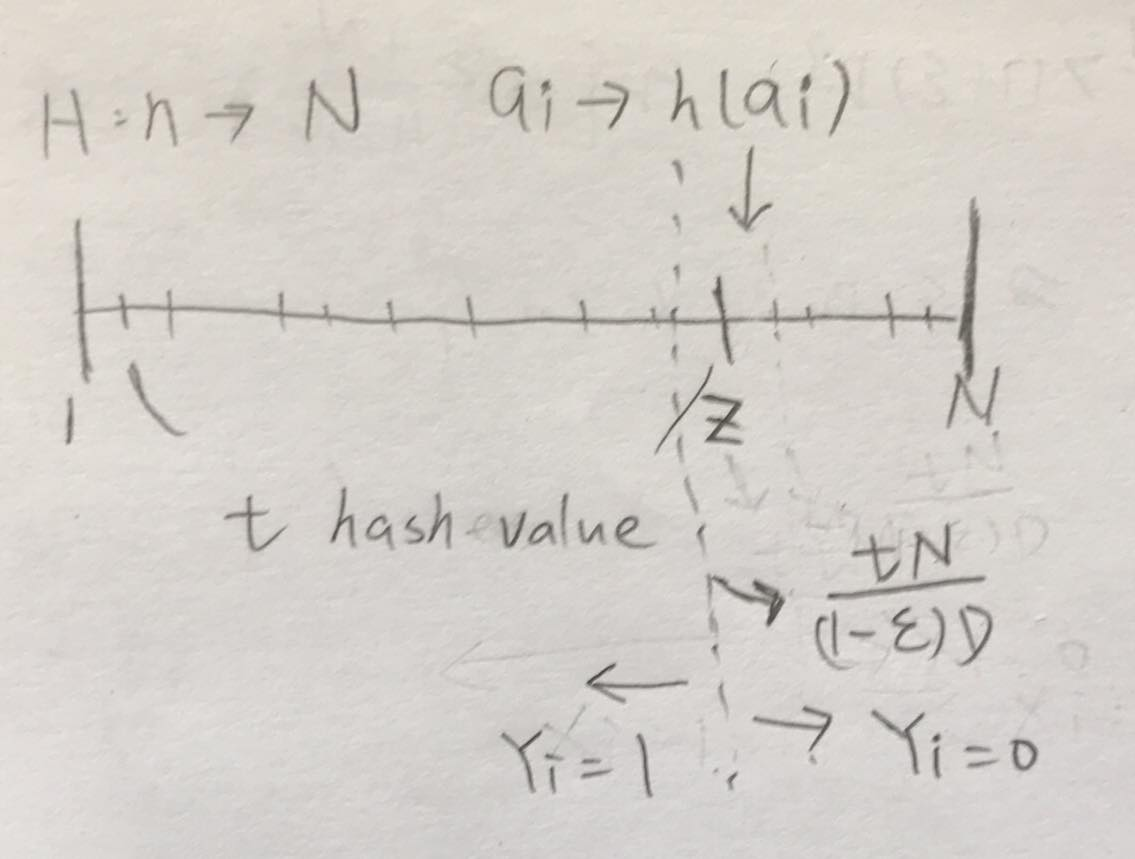 H: n → N   ai → h(ai)
1   z   N
t hash value
tN
(1-ε)D
Yi = 1   Yi = 0